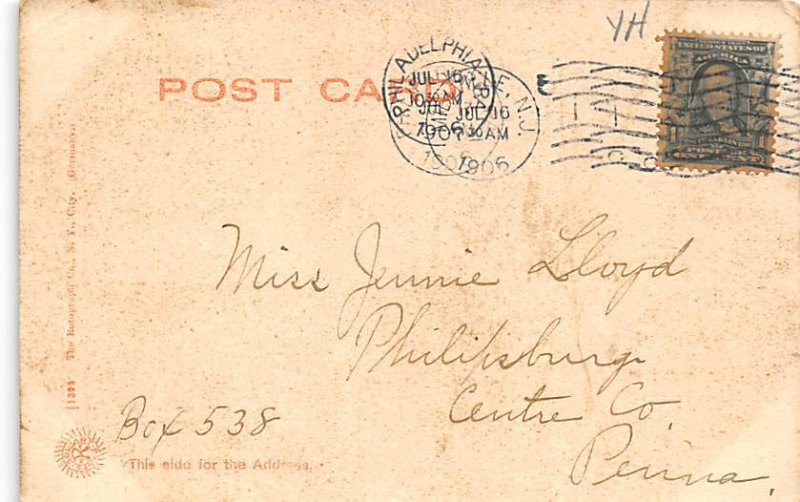 YH
POST CARD
PHILADELPHIA
JUL 16
10 30 AM
JUL 16
7 30 AM
1906
1906
UNITED STATES OF
AMERICA
Miss Jennie Lloyd
Philipsburg
Centre Co.
Penna.
Box 538
This side for the Address.
11394 The Rotograph Co., N. Y., City. Germany.)